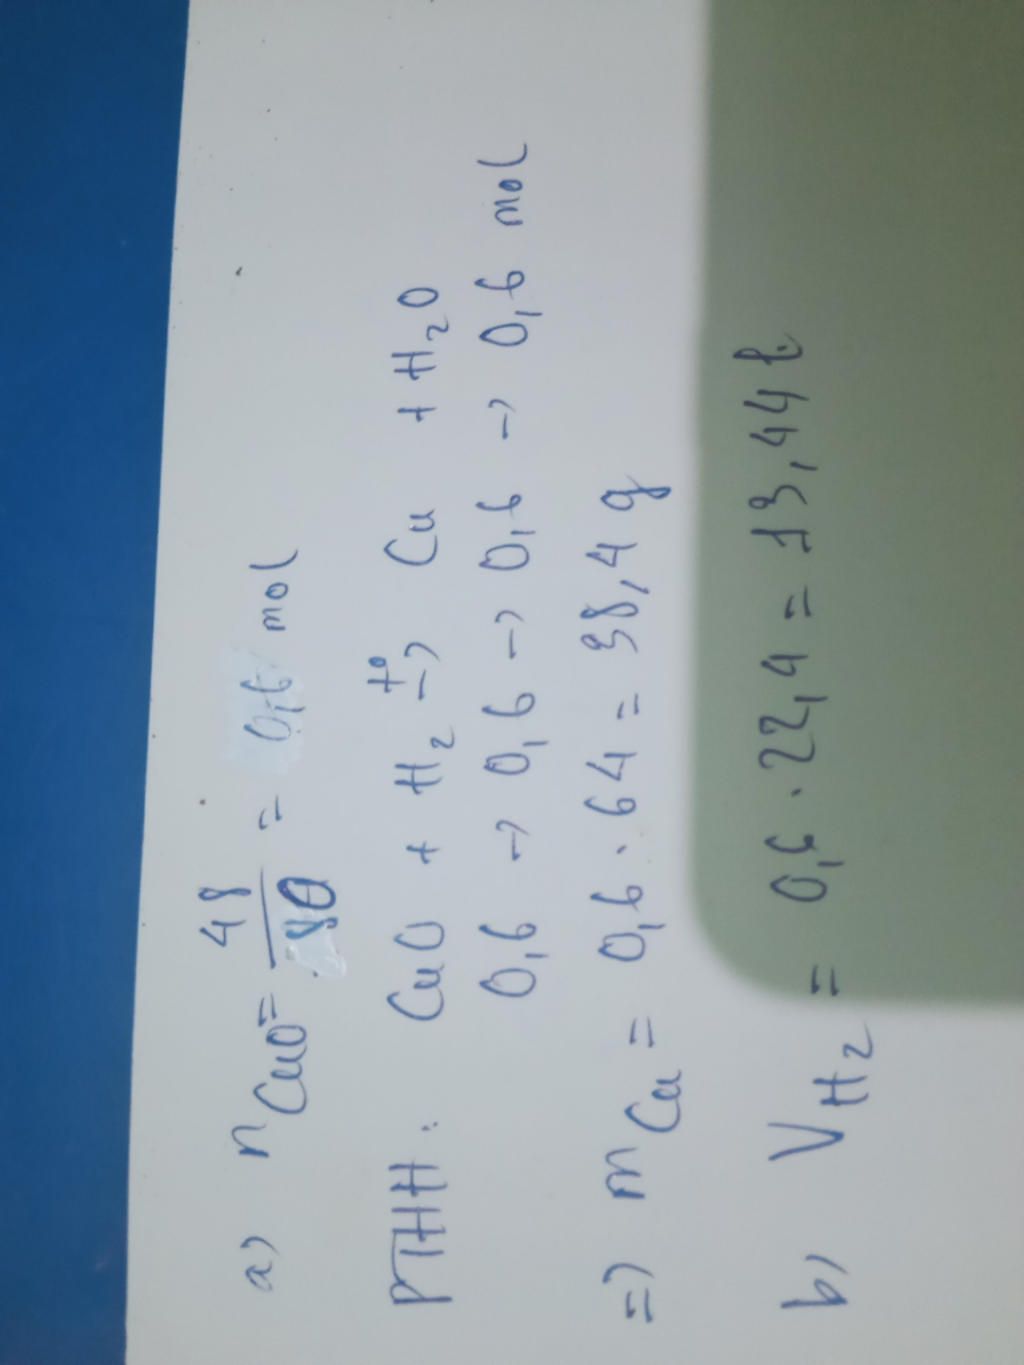 a) n CuO = 48/80 = 0,6 mol
PTHH: CuO + H₂ →(t°) Cu + H₂O
0,6 → 0,6 → 0,6 → 0,6 mol
=) m Cu = 0,6 . 64 = 38,4 g
b) V H₂ = 0,6 . 22,4 = 13,44 l.